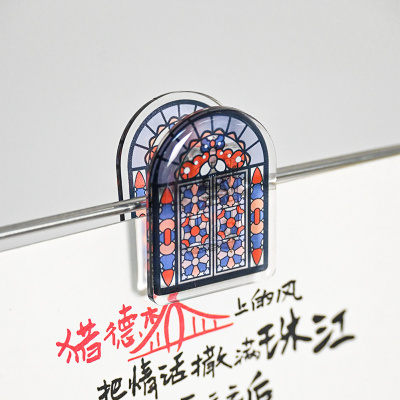 猎德桥上的风
把情话撒满珠江